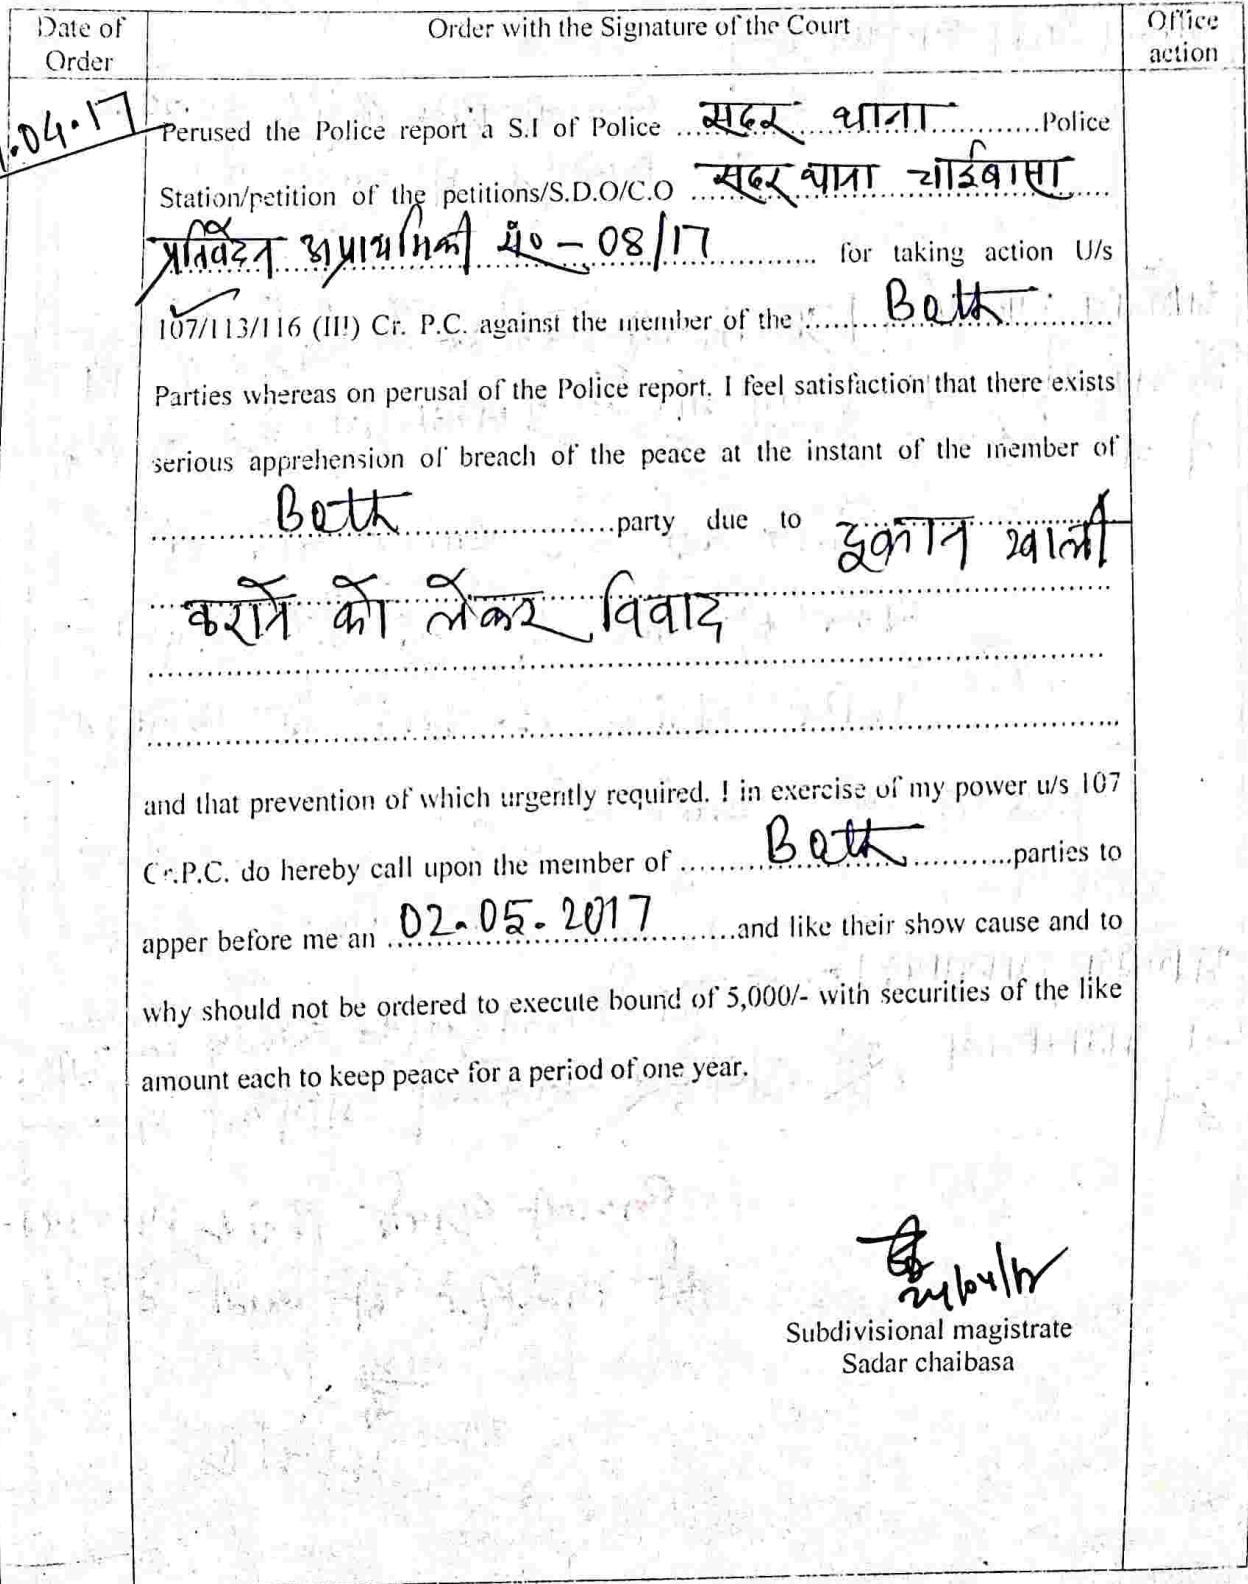 Date of Order
Order with the Signature of the Court
Office action
.04.17
Perused the Police report a S.I of Police ....सदर थाना............Police
Station/petition of the petitions/S.D.O/C.O ..सदर थाना चाईबासा....
प्रतिवेदन अप्राथमिकी सं० - 08/17 ............ for taking action U/s
107/113/116 (III) Cr. P.C. against the member of the ........Both............
Parties whereas on perusal of the Police report. I feel satisfaction that there exists
serious apprehension of breach of the peace at the instant of the member of
............Both......................party due to दुकान खाली
कराने को लेकर विवाद
and that prevention of which urgently required. I in exercise of my power u/s 107
Cr.P.C. do hereby call upon the member of .........Both..........parties to
apper before me an 02-05-2017........and like their show cause and to
why should not be ordered to execute bound of 5,000/- with securities of the like
amount each to keep peace for a period of one year.
Subdivisional magistrate
Sadar chaibasa